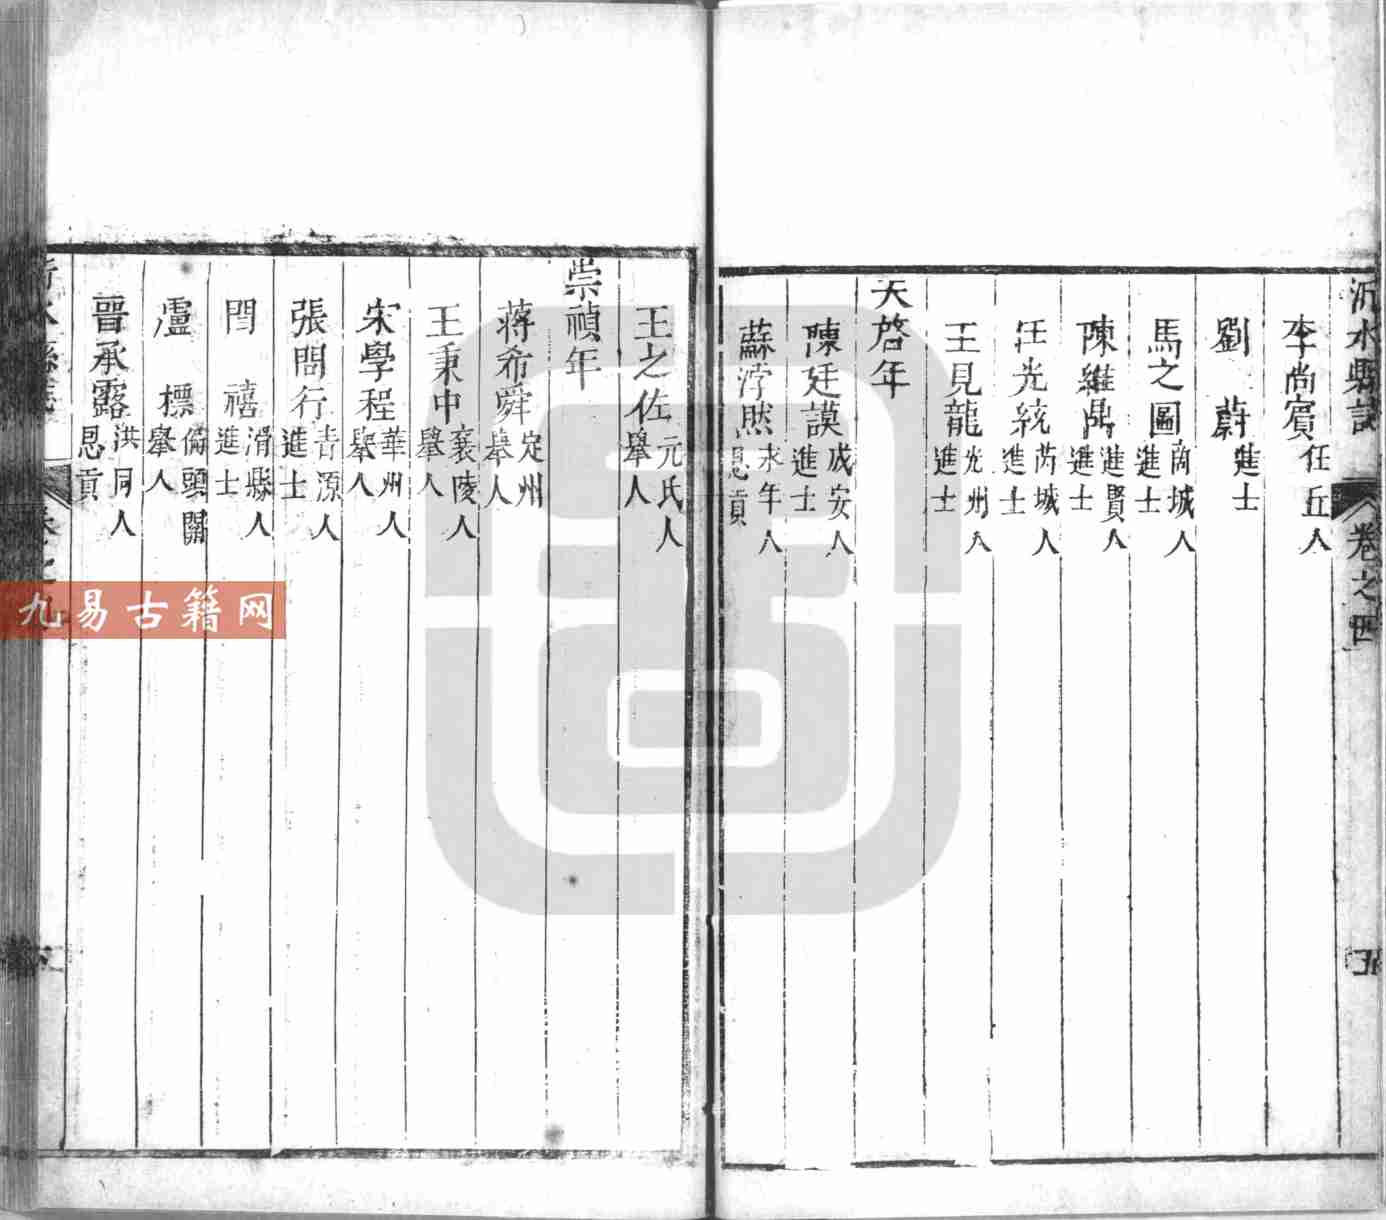 沂水縣誌 卷之四 五
李尚賓 任丘人
劉蔚 進士
馬之圖 商城人 進士
陳維鼎 進賢人 進士
汪光統 芮城人 進士
王見龍 光州人 進士
天啓年
陳廷謨 成安人 進士
蘇浡然 永年人 恩貢
王之佐 元氏人 舉人
崇禎年
蔣希舜 定州 舉人
王秉中 襄陵人 舉人
宋學程 華州人 舉人
張問行 青源人 進士
閆禧 滑縣人 進士
盧標 偏頭關 舉人
晉承露 洪同人 恩貢
九易古籍网